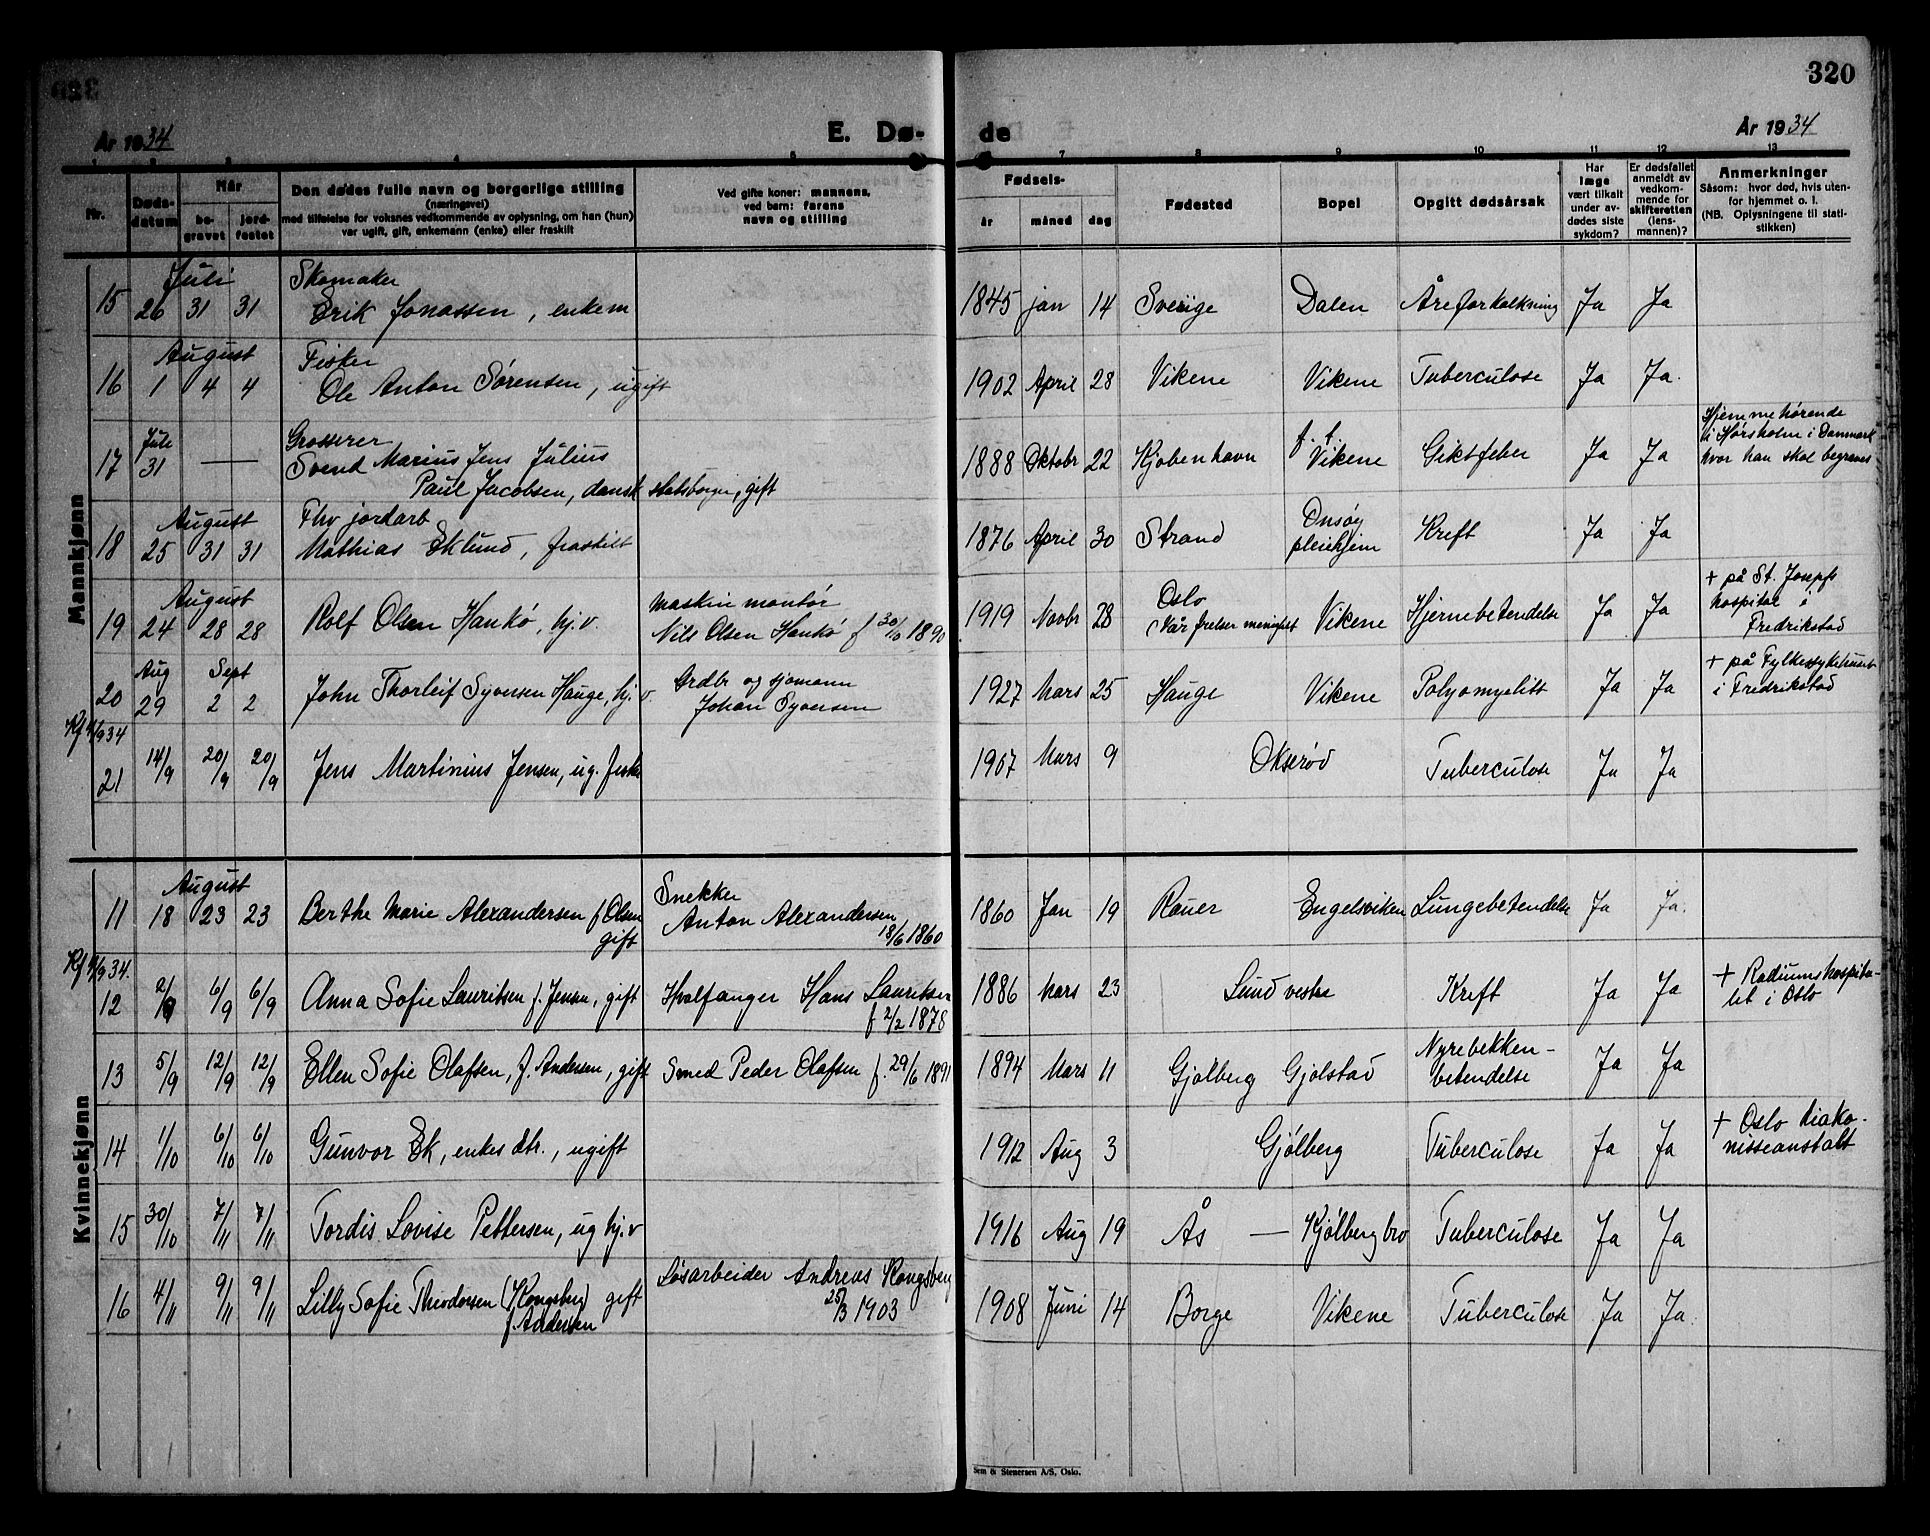 320
År 1934
E. Dø-
de
År 1934
1 2 3 4 5 7 8 9 10 11 12 13
Nr.
Døds-
datum
Når
be-
gravet
jord-
festet
Den dødes fulle navn og borgerlige stilling
(næringsvei)
med tilføielse for voksnes vedkommende av oplysning, om han (hun)
var ugift, gift, enkemann (enke) eller fraskilt
Ved gifte koner: mannens,
ved barn: farens
navn og stilling
Fødsels-
år måned dag
Fødested
Bopel
Opgitt dødsårsak
Har
læge
vært tilkalt
under av-
dødes siste
sykdom?
Er dødsfallet
anmeldt av
vedkom-
mende for
skifteretten
(lens-
mannen)?
Anmerkninger
Såsom: hvor død, hvis uten-
for hjemmet o. l.
(NB. Oplysningene til stati-
stikken)
Mannkjønn
Juli Skomaker
15 26 31 31 Erik Jonassen, enkem 1845 jan 14 Sverige Dalen Åreforkalkning Ja Ja
August Fisker
16 1 4 4 Ole Anton Sørensen, ugift 1902 April 28 Vikene Vikene Tuberculose Ja Ja.
Juli Grosserer f. t. Hjemmehørende
17 31 — Svend Marius Jens Julius 1888 Oktobr 22 Kjøbenhavn Vikene Giktfeber Ja Ja i Hørsholm i Danmark
Paul Jacobsen, dansk statsborger, gift hvor han skal begraves
August Fhv jordarb Onsøy
18 25 31 31 Mathias Eklund, fraskilt 1876 April 30 Strand pleiehjem Kreft Ja Ja
August maskin montør Oslo + på St. Josephs
19 24 28 28 Rolf Olsen Hankø, hj.v. Nils Olsen Hankø f 30/10 1890 1919 Novbr 28 (Vår frelser menighet Vikene Hjernebetendelse Ja Ja hospital i
Fredrikstad
Aug Sept Ardbr og sjømann + på Fylkessykehuset
20 29 2 2 John Thorleif Syversen Hauge, hj. v. Johan Syversen 1927 Mars 25 Hauge Vikene Polyomyelitt Ja Ja i Fredrikstad
Kf 4/9 34
21 14/9 20/9 20/9 Jens Martinius Jensen, ug. fisker 1907 Mars 9 Okserød Tuberculose Ja Ja
Kvinnekjønn
August Snekker
11 18 23 23 Berthe Marie Alexandersen f Olsen Anton Alexandersen 1860 Jan 19 Rauer Engelsviken Lungebetendelse Ja Ja.
gift 18/6 1860
Kf 4/9 34.
12 2/9 6/9 6/9 Anna Sofie Lauritsen f. Jensen, gift Hvalfanger Hans Lauritsen 1886 Mars 23 Lund vestre Kreft Ja Ja + Radiumshospita-
f 2/2 1878 let i Oslo
13 5/9 12/9 12/9 Ellen Sofie Olafsen, f. Andersen, gift Smed Peder Olafsen f. 29/6 1891 1894 Mars 11 Gjølberg Gjølstad Nyrebekken-
betendelse Ja Ja
14 1/10 6/10 6/10 Gunvor Ek, enkes dtr., ugift 1912 Aug 3 Gjølberg Tuberculose Ja Ja + Oslo diako-
nisseanstalt
15 30/10 7/11 7/11 Tordis Lovise Pettersen, ug hj.v 1916 Aug 19 Ås — Kjølberg bro Tuberculose Ja Ja
16 4/11 9/11 9/11 Lilly Sofie Theodorsen (Kongsberg) gift Løsarbeider Andreas Kongsberg 1908 Juni 14 Borge Vikene Tuberculose Ja Ja.
f. Andersen 25/3 1903
Sem & Stenersen A/S, Oslo.